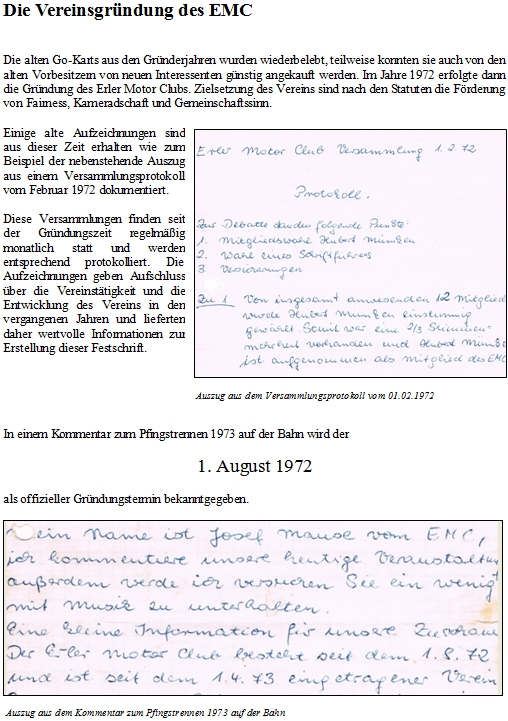 Die Vereinsgründung des EMC
Die alten Go-Karts aus den Gründerjahren wurden wiederbelebt, teilweise konnten sie auch von den
alten Vorbesitzern von neuen Interessenten günstig angekauft werden. Im Jahre 1972 erfolgte dann
die Gründung des Erler Motor Clubs. Zielsetzung des Vereins sind nach den Statuten die Förderung
von Fairness, Kameradschaft und Gemeinschaftssinn.
Einige alte Aufzeichnungen sind
aus dieser Zeit erhalten wie zum
Beispiel der nebenstehende Auszug
aus einem Versammlungsprotokoll
vom Februar 1972 dokumentiert.
Diese Versammlungen finden seit
der Gründungszeit regelmäßig
monatlich statt und werden
entsprechend protokolliert. Die
Aufzeichnungen geben Aufschluss
über die Vereinstätigkeit und die
Entwicklung des Vereins in den
vergangenen Jahren und lieferten
daher wertvolle Informationen zur
Erstellung dieser Festschrift.
Erler Motor Club Versammlung 1.2.72
Protokoll.
Zur Debatte standen folgende Punkte:
1. Mitgliedswahl Hubert Münken
2. Wahl eines Schriftführers
3. Versicherungen
Zu 1 Von insgesamt anwesenden 12 Mitglied
wurde Hubert Münken einstimmig
gewählt Somit war eine 2/3 Stimmen-
mehrheit vorhanden und Hubert Münke
ist aufgenommen als Mitglied des EMC
Auszug aus dem Versammlungsprotokoll vom 01.02.1972
In einem Kommentar zum Pfingstrennen 1973 auf der Bahn wird der
1. August 1972
als offizieller Gründungstermin bekanntgegeben.
Mein Name ist Josef Mause vom EMC,
ich kommentiere unsere heutige Veranstaltun
außerdem werde ich versuchen Sie ein wenig
mit Musik zu unterhalten.
Eine kleine Information für unsere Zuschau
Der Erler Motor Club besteht seit dem 1.8.72
und ist seit dem 1.4.73 eingetragener Verein
Auszug aus dem Kommentar zum Pfingstrennen 1973 auf der Bahn